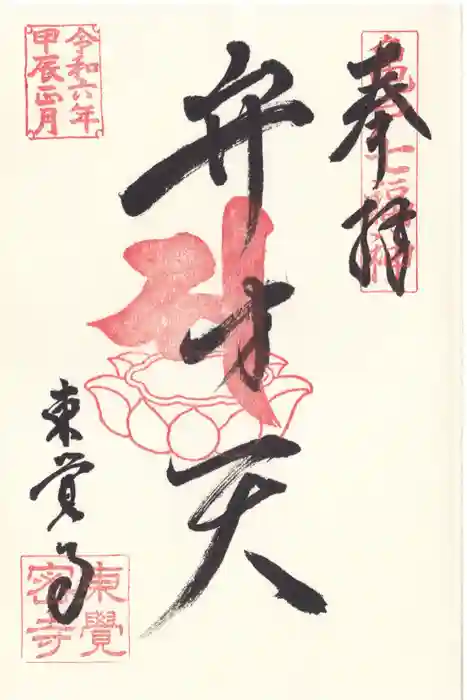 奉拝
亀戸七福神
弁才天
令和六年
甲辰正月
東覚寺
東覺
密寺